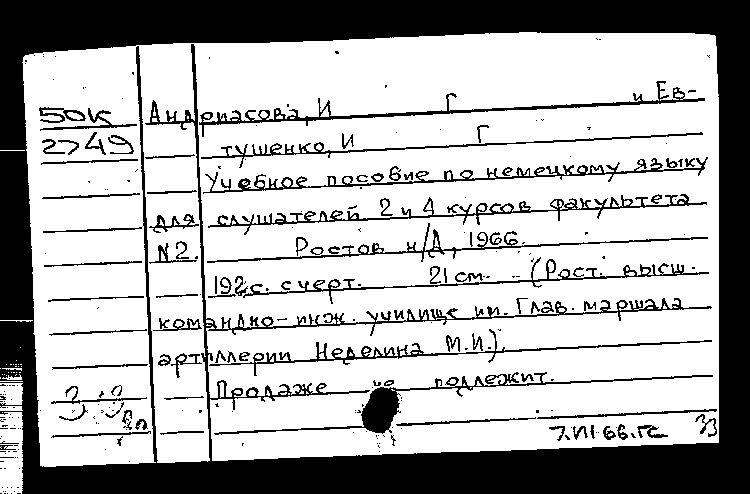 50К Андриасова, И Г и Ев-
2749 тушенко, И Г
Учебное пособие по немецкому языку
для слушателей 2 и 4 курсов факультета
N2. Ростов н/Д, 1966.
192с. с черт. 21 см. (Рост. высш.
командно-инж. училище им. Глав. маршала
артиллерии Неделина М.И.).
Продаже не подлежит.